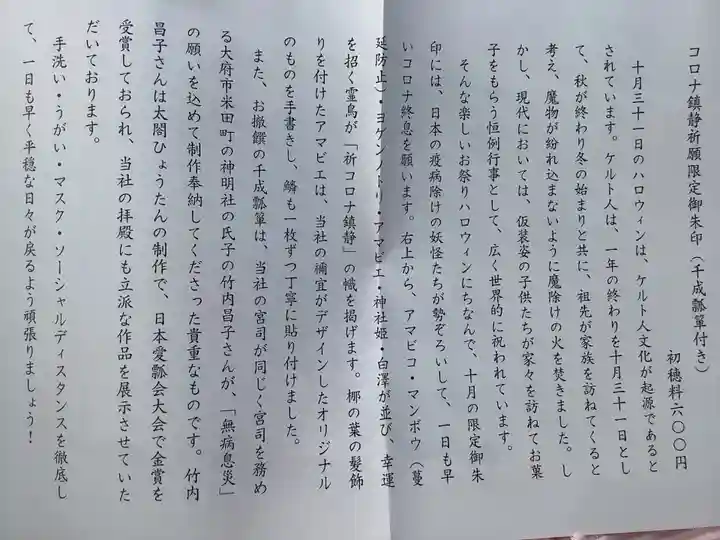 コロナ鎮静祈願限定御朱印（千成瓢箪付き）
初穂料六〇〇円
十月三十一日のハロウィンは、ケルト人文化が起源であると
されています。ケルト人は、一年の終わりを十月三十一日とし
て、秋が終わり冬の始まりと共に、祖先が家族を訪ねてくると
考え、魔物が紛れ込まないように魔除けの火を焚きました。し
かし、現代においては、仮装姿の子供たちが家々を訪ねてお菓
子をもらう恒例行事として、広く世界的に祝われています。
そんな楽しいお祭りハロウィンにちなんで、十月の限定御朱
印には、日本の疫病除けの妖怪たちが勢ぞろいして、一日も早
いコロナ終息を願います。右上から、アマビコ・マンボウ（蔓
延防止）・ヨゲンノトリ・アマビエ・神社姫・白澤が並び、幸運
を招く霊鳥が「祈コロナ鎮静」の幟を掲げます。梛の葉の髪飾
りを付けたアマビエは、当社の禰宜がデザインしたオリジナル
のものを手書きし、鱗も一枚ずつ丁寧に貼り付けました。
また、お撤饌の千成瓢箪は、当社の宮司が同じく宮司を務め
る大府市米田町の神明社の氏子の竹内昌子さんが、「無病息災」
の願いを込めて制作奉納してくださった貴重なものです。竹内
昌子さんは太閤ひょうたんの制作で、日本愛瓢会大会で金賞を
受賞しておられ、当社の拝殿にも立派な作品を展示させていた
だいております。
手洗い・うがい・マスク・ソーシャルディスタンスを徹底し
て、一日も早く平穏な日々が戻るよう頑張りましょう！